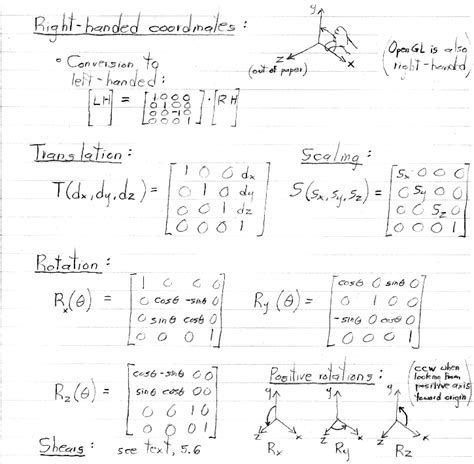 Right-handed coordinates :
y
x
z
(out of paper)
(OpenGL is also right-handed)
° Conversion to
left-handed :
[LH] = [1 0 0 0
0 1 0 0
0 0 -1 0
0 0 0 1] · [RH]
Translation :
T(dx, dy, dz) = [1 0 0 dx
0 1 0 dy
0 0 1 dz
0 0 0 1]
Scaling :
S(Sx, Sy, Sz) = [Sx 0 0 0
0 Sy 0 0
0 0 Sz 0
0 0 0 1]
Rotation :
Rx(θ) = [1 0 0 0
0 cosθ -sinθ 0
0 sinθ cosθ 0
0 0 0 1]
Ry(θ) = [cosθ 0 sinθ 0
0 1 0 0
-sinθ 0 cosθ 0
0 0 0 1]
Rz(θ) = [cosθ -sinθ 0 0
sinθ cosθ 0 0
0 0 1 0
0 0 0 1]
Positive rotations :
(ccw when
looking from
positive axis
toward origin)
y y y
z x z x z x
Rx Ry Rz
Shears : see text, 5.6